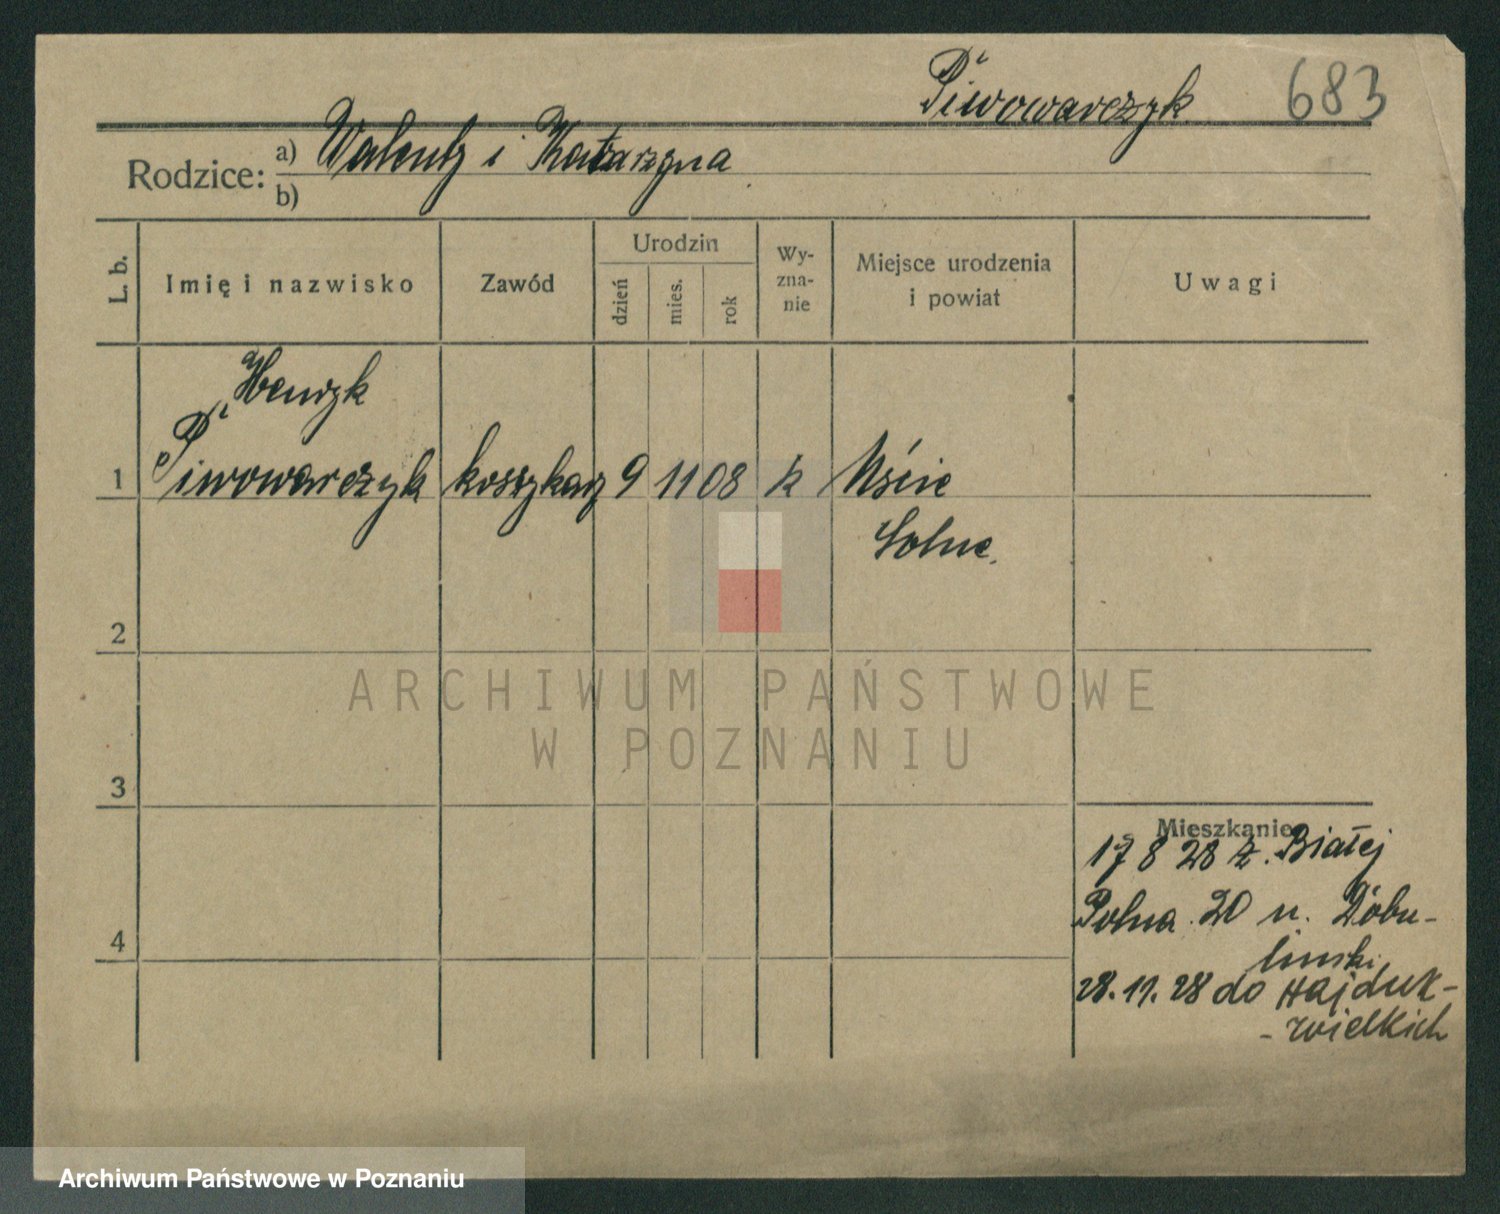 Piwowarczyk 683
Rodzice: a) Walenty i Katarzyna
b)
L. b. Imię i nazwisko Zawód Urodzin dzień mies. rok Wy-zna-nie Miejsce urodzenia i powiat Uwagi
Henryk
1 Piwowarczyk koszykarz 9 11 08 k Uście
Solne.
2
ARCHIWUM PAŃSTWOWE
W POZNANIU
3
Mieszkanie
17 8 28 z. Białej
4 Polna 20 u. Dóbu-
linski
28.11.28 do Hajduk-
-wielkich
Archiwum Państwowe w Poznaniu